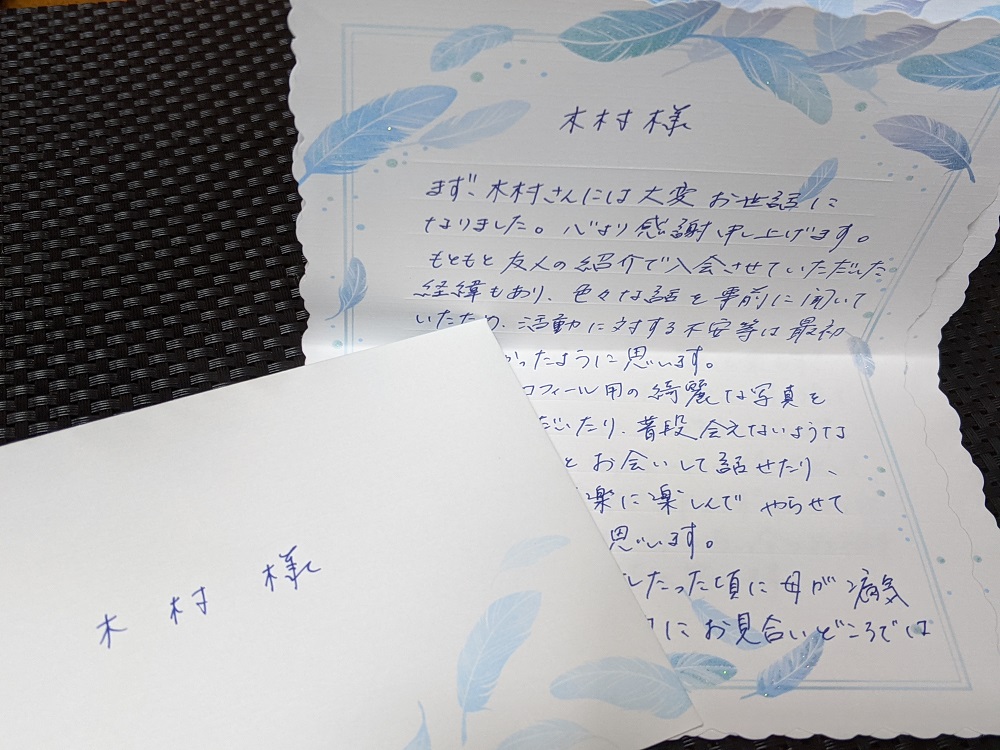 木村様
まず、木村さんには大変お世話に
なりました。心より感謝申し上げます。
もともと友人の紹介で入会させていただいた
経緯もあり、色々な話を事前に聞いて
いたため、活動に対する不安等は最初
かったように思います。
ロフィール用の綺麗な写真を
だいたり、普段会えないような
とお会いして話せたり、
楽に楽しんでやらせて
思います。
したった頃に母が病気
にお見合いどころでは
木村様